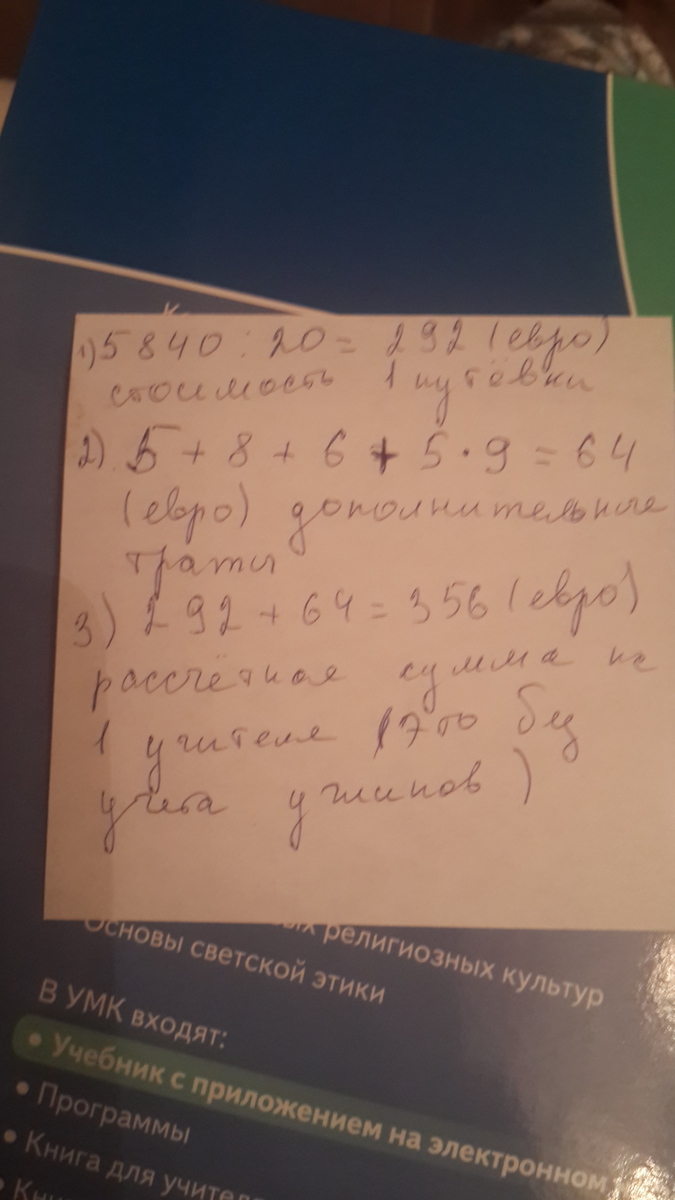 1) 5840 : 20 = 292 (евро)
стоимость 1 путёвки
2) 5 + 8 + 6 + 5 · 9 = 64
(евро) дополнительные
траты
3) 292 + 64 = 356 (евро)
рассчётная сумма на
1 учителя (это без
учёта ужинов)
ых религиозных культур
Основы светской этики
В УМК входят:
• Учебник с приложением на электронном
• Программы
• Книга для учител